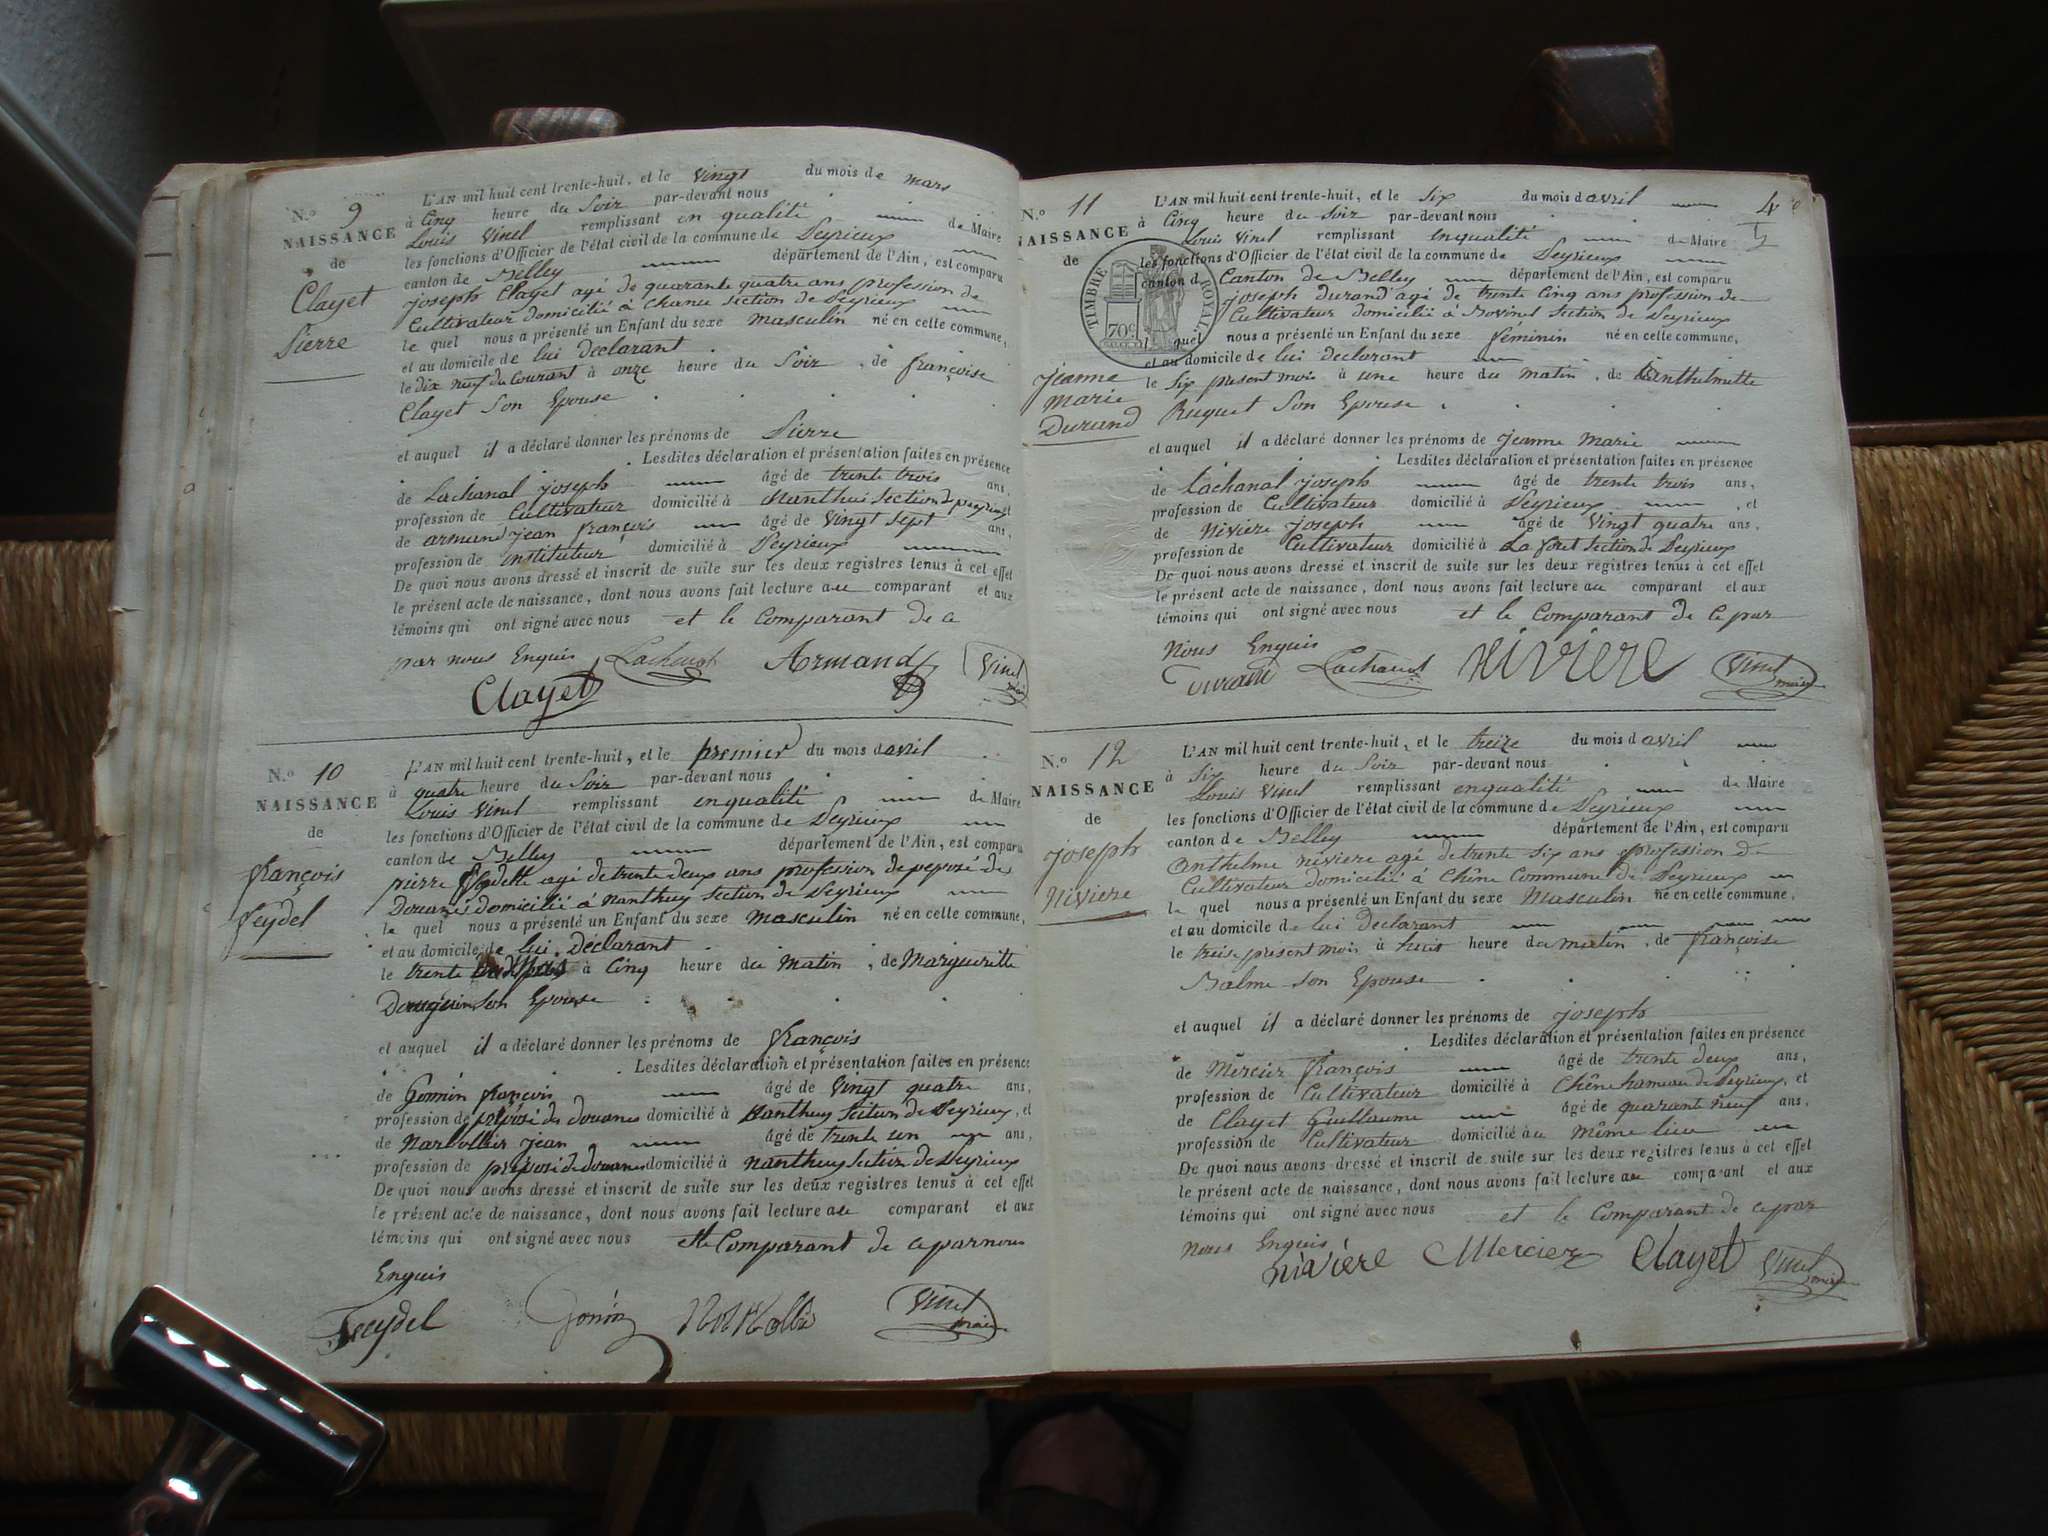 N.o 9
NAISSANCE
de
Clayet
Pierre
L'AN mil huit cent trente-huit, et le vingt du mois de mars
à Cinq heure du Soir par-devant nous
Louis Vinel remplissant en qualité de Maire
les fonctions d'Officier de l'état civil de la commune de Peyrieux
canton de Belley département de l'Ain, est comparu
joseph Clayet agé de quarante quatre ans profession de
Cultivateur domicilié à Section de Peyrieux
le quel nous a présenté un Enfant du sexe masculin né en cette commune,
et au domicile de lui déclarant
le dix neuf du Courant à onze heure du Soir, de françoise
Clayet Son Epouse
et auquel il a déclaré donner les prénoms de Pierre
Lesdites déclaration et présentation faites en présence
de Lachanal joseph âgé de trente trois ans,
profession de Cultivateur domicilié à Nanthui Section de peyrieux et
de armand jean françois âgé de vingt sept ans,
profession de instituteur domicilié à Peyrieux
De quoi nous avons dressé et inscrit de suite sur les deux registres tenus à cet effet
le présent acte de naissance, dont nous avons fait lecture au comparant et aux
témoins qui ont signé avec nous et le Comparant de ce
par nous Enquis Lachanal Armand Vinel maire
Clayet
N.o 10
NAISSANCE
de
françois
feydel
L'AN mil huit cent trente-huit, et le premier du mois d avril
à quatre heure du Soir par-devant nous
Louis Vinel remplissant en qualité de Maire
les fonctions d'Officier de l'état civil de la commune de Peyrieux
canton de Belley département de l'Ain, est comparu
pierre agé de trente deux ans profession de preposé des
Douanes domicilié à Nanthuy Section de Peyrieux
le quel nous a présenté un Enfant du sexe masculin né en cette commune,
et au domicile de lui Déclarant
le trente à Cinq heure du Matin, de Margueritte
Son Epouse
et auquel il a déclaré donner les prénoms de françois
Lesdites déclaration et présentation faites en présence
de Gonin françois âgé de vingt quatre ans,
profession de préposé des douanes domicilié à Nanthuy Section de Peyrieux, et
de jean âgé de trente un ans,
profession de préposé de douanes domicilié à Nanthuy Section de Peyrieux
De quoi nous avons dressé et inscrit de suite sur les deux registres tenus à cet effet
le présent acte de naissance, dont nous avons fait lecture au comparant et aux
témoins qui ont signé avec nous et le Comparant de ce par nous
Enquis
Feydel Gonin Vinel maire
N.o 11
NAISSANCE
de
jeanne
marie
Durand
4
TIMBRE ROYAL
70c
L'AN mil huit cent trente-huit, et le Six du mois d avril
à Cinq heure du Soir par-devant nous
Louis Vinel remplissant en qualité de Maire
les fonctions d'Officier de l'état civil de la commune de Peyrieux
canton d Canton de Belley département de l'Ain, est comparu
joseph durand agé de trente Cinq ans profession de
Cultivateur domicilié à Bovinel Section de Peyrieux
l quel nous a présenté un Enfant du sexe féminin né en cette commune,
et au domicile de lui declarant
le Six present mois à une heure du matin, de anthelmette
Ruguet Son Epouse
et auquel il a déclaré donner les prénoms de jeanne Marie
Lesdites déclaration et présentation faites en présence
de Lachanal joseph âgé de trente trois ans,
profession de Cultivateur domicilié à Peyrieux, et
de Niviere joseph âgé de vingt quatre ans,
profession de Cultivateur domicilié à La foret Section de Peyrieux
De quoi nous avons dressé et inscrit de suite sur les deux registres tenus à cet effet
le présent acte de naissance, dont nous avons fait lecture au comparant et aux
témoins qui ont signé avec nous et le Comparant de ce par
Nous Enquis
Durand Lachanal Niviere Vinel maire
N.o 12
NAISSANCE
de
joseph
Niviere
L'AN mil huit cent trente-huit, et le treize du mois d avril
à Six heure du Soir par-devant nous
Louis Vinel remplissant en qualité de Maire
les fonctions d'Officier de l'état civil de la commune de Peyrieux
canton de Belley département de l'Ain, est comparu
Anthelme niviere agé de trente Six ans profession de
Cultivateur domicilié à Chêne Commune de Peyrieux
le quel nous a présenté un Enfant du sexe Masculin né en cette commune,
et au domicile de lui declarant
le treise present mois à huit heure du matin, de françoise
Balme Son Epouse
et auquel il a déclaré donner les prénoms de joseph
Lesdites déclaration et présentation faites en présence
de Mercier françois âgé de trente deux ans,
profession de Cultivateur domicilié à Chêne hameau de Peyrieux, et
de Clayet Guillaume âgé de quarante neuf ans,
profession de Cultivateur domicilié au même lieu
De quoi nous avons dressé et inscrit de suite sur les deux registres tenus à cet effet
le présent acte de naissance, dont nous avons fait lecture au comparant et aux
témoins qui ont signé avec nous et le Comparant de ce par
Nous Enquis
nivière Mercier Clayet Vinel maire